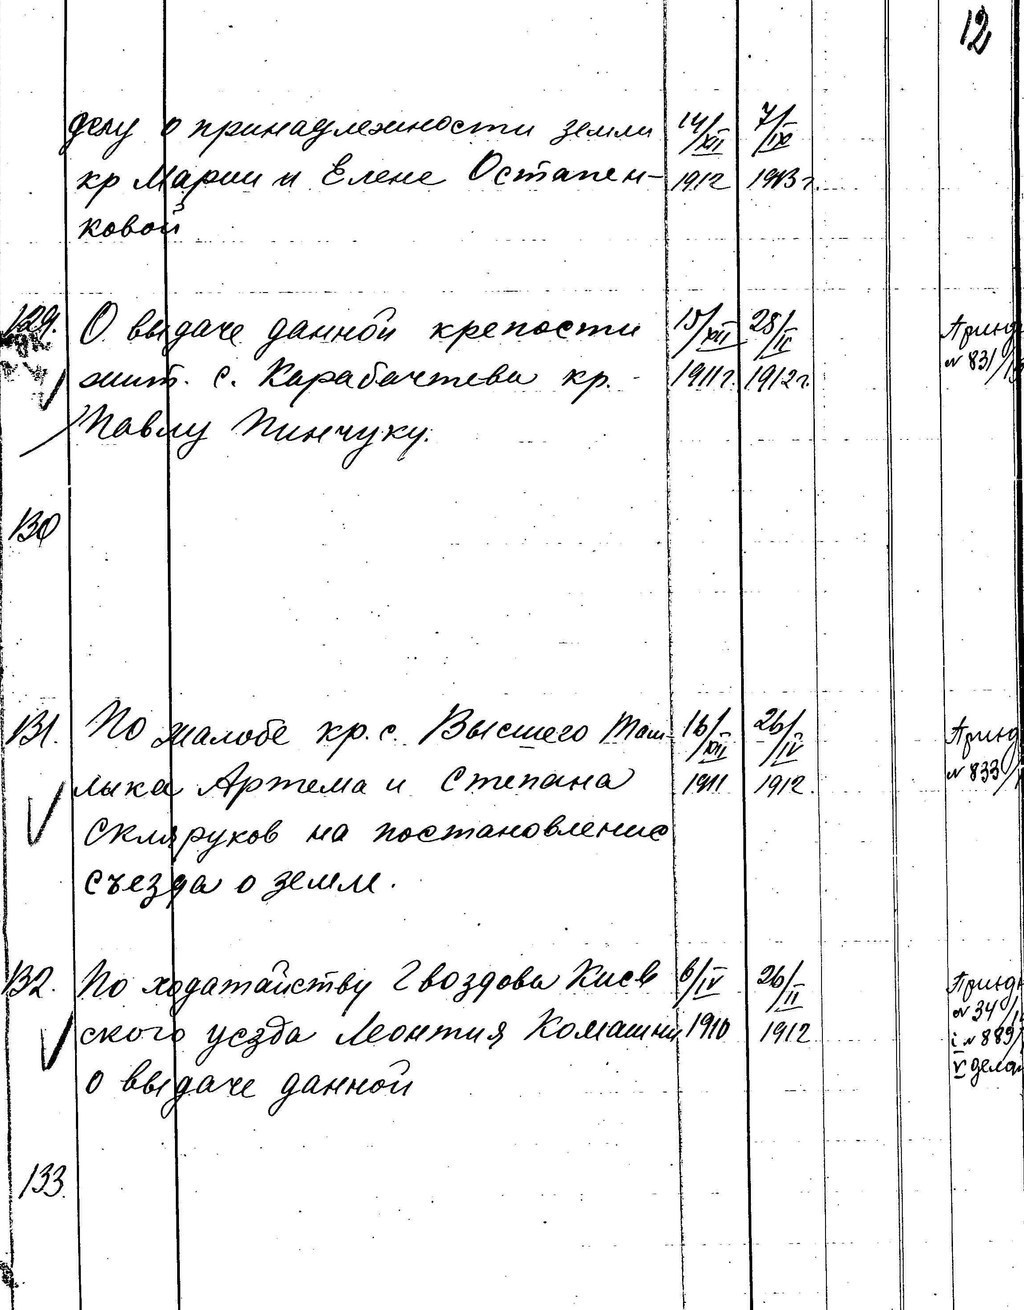 12
делу о принадлежности земли 14/XII 7/IX
кр Марии и Елене Остапен- 1912 1913 г.
ковой
129. О выдаче данной крепости 15/XII 28/II
жит. с. Карабачтева кр. - 1911 г. 1912 г. № 831/
Павлу Пинчуку.
130
131. По жалобе кр. с. Высшего Таш- 16/XII 26/IV
лыка Артема и Степана 1911 1912. № 833/
Скляруков на постановление
съезда о земле.
132. По ходатайству Гвоздова Киев 6/IV 26/II
ского уезда Леонтия 1910 1912 № 34/
о выдаче данной і № 883/
V дела
133.